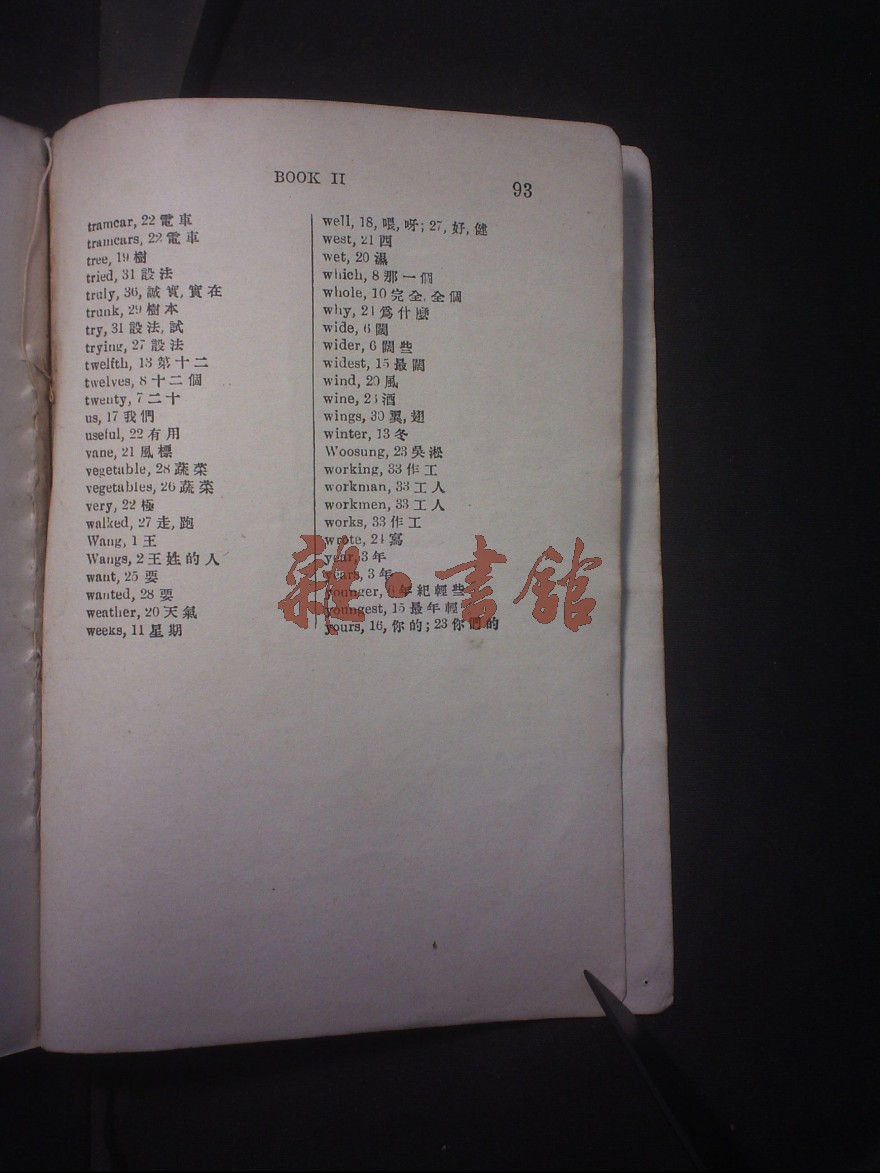 BOOK II
93
tramcar, 22 電車
tramcars, 22 電車
tree, 19 樹
tried, 31 設法
truly, 36, 誠實, 實在
trunk, 29 樹本
try, 31 設法, 試
trying, 27 設法
twelfth, 13 第十二
twelves, 8 十二個
twenty, 7 二十
us, 17 我們
useful, 22 有用
vane, 21 風標
vegetable, 28 蔬菜
vegetables, 26 蔬菜
very, 22 極
walked, 27 走, 跑
Wang, 1 王
Wangs, 2 王姓的人
want, 25 要
wanted, 28 要
weather, 20 天氣
weeks, 11 星期
well, 18, 喂, 呀; 27, 好, 健
west, 21 西
wet, 20 濕
which, 8 那一個
whole, 10 完全, 全個
why, 21 爲什麼
wide, 6 闊
wider, 6 闊些
widest, 15 最闊
wind, 20 風
wine, 23 酒
wings, 30 翼, 翅
winter, 13 冬
Woosung, 23 吳淞
working, 33 作工
workman, 33 工人
workmen, 33 工人
works, 33 作工
wrote, 21 寫
year, 3 年
years, 3 年
younger, 6 年紀輕些
youngest, 15 最年輕
yours, 16, 你的; 23 你們的
雜·書館